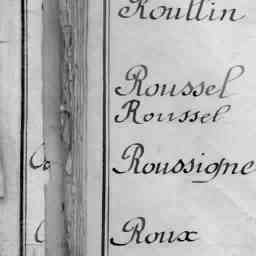 Roullin
Roussel
Roussel
Roussigne
Roux